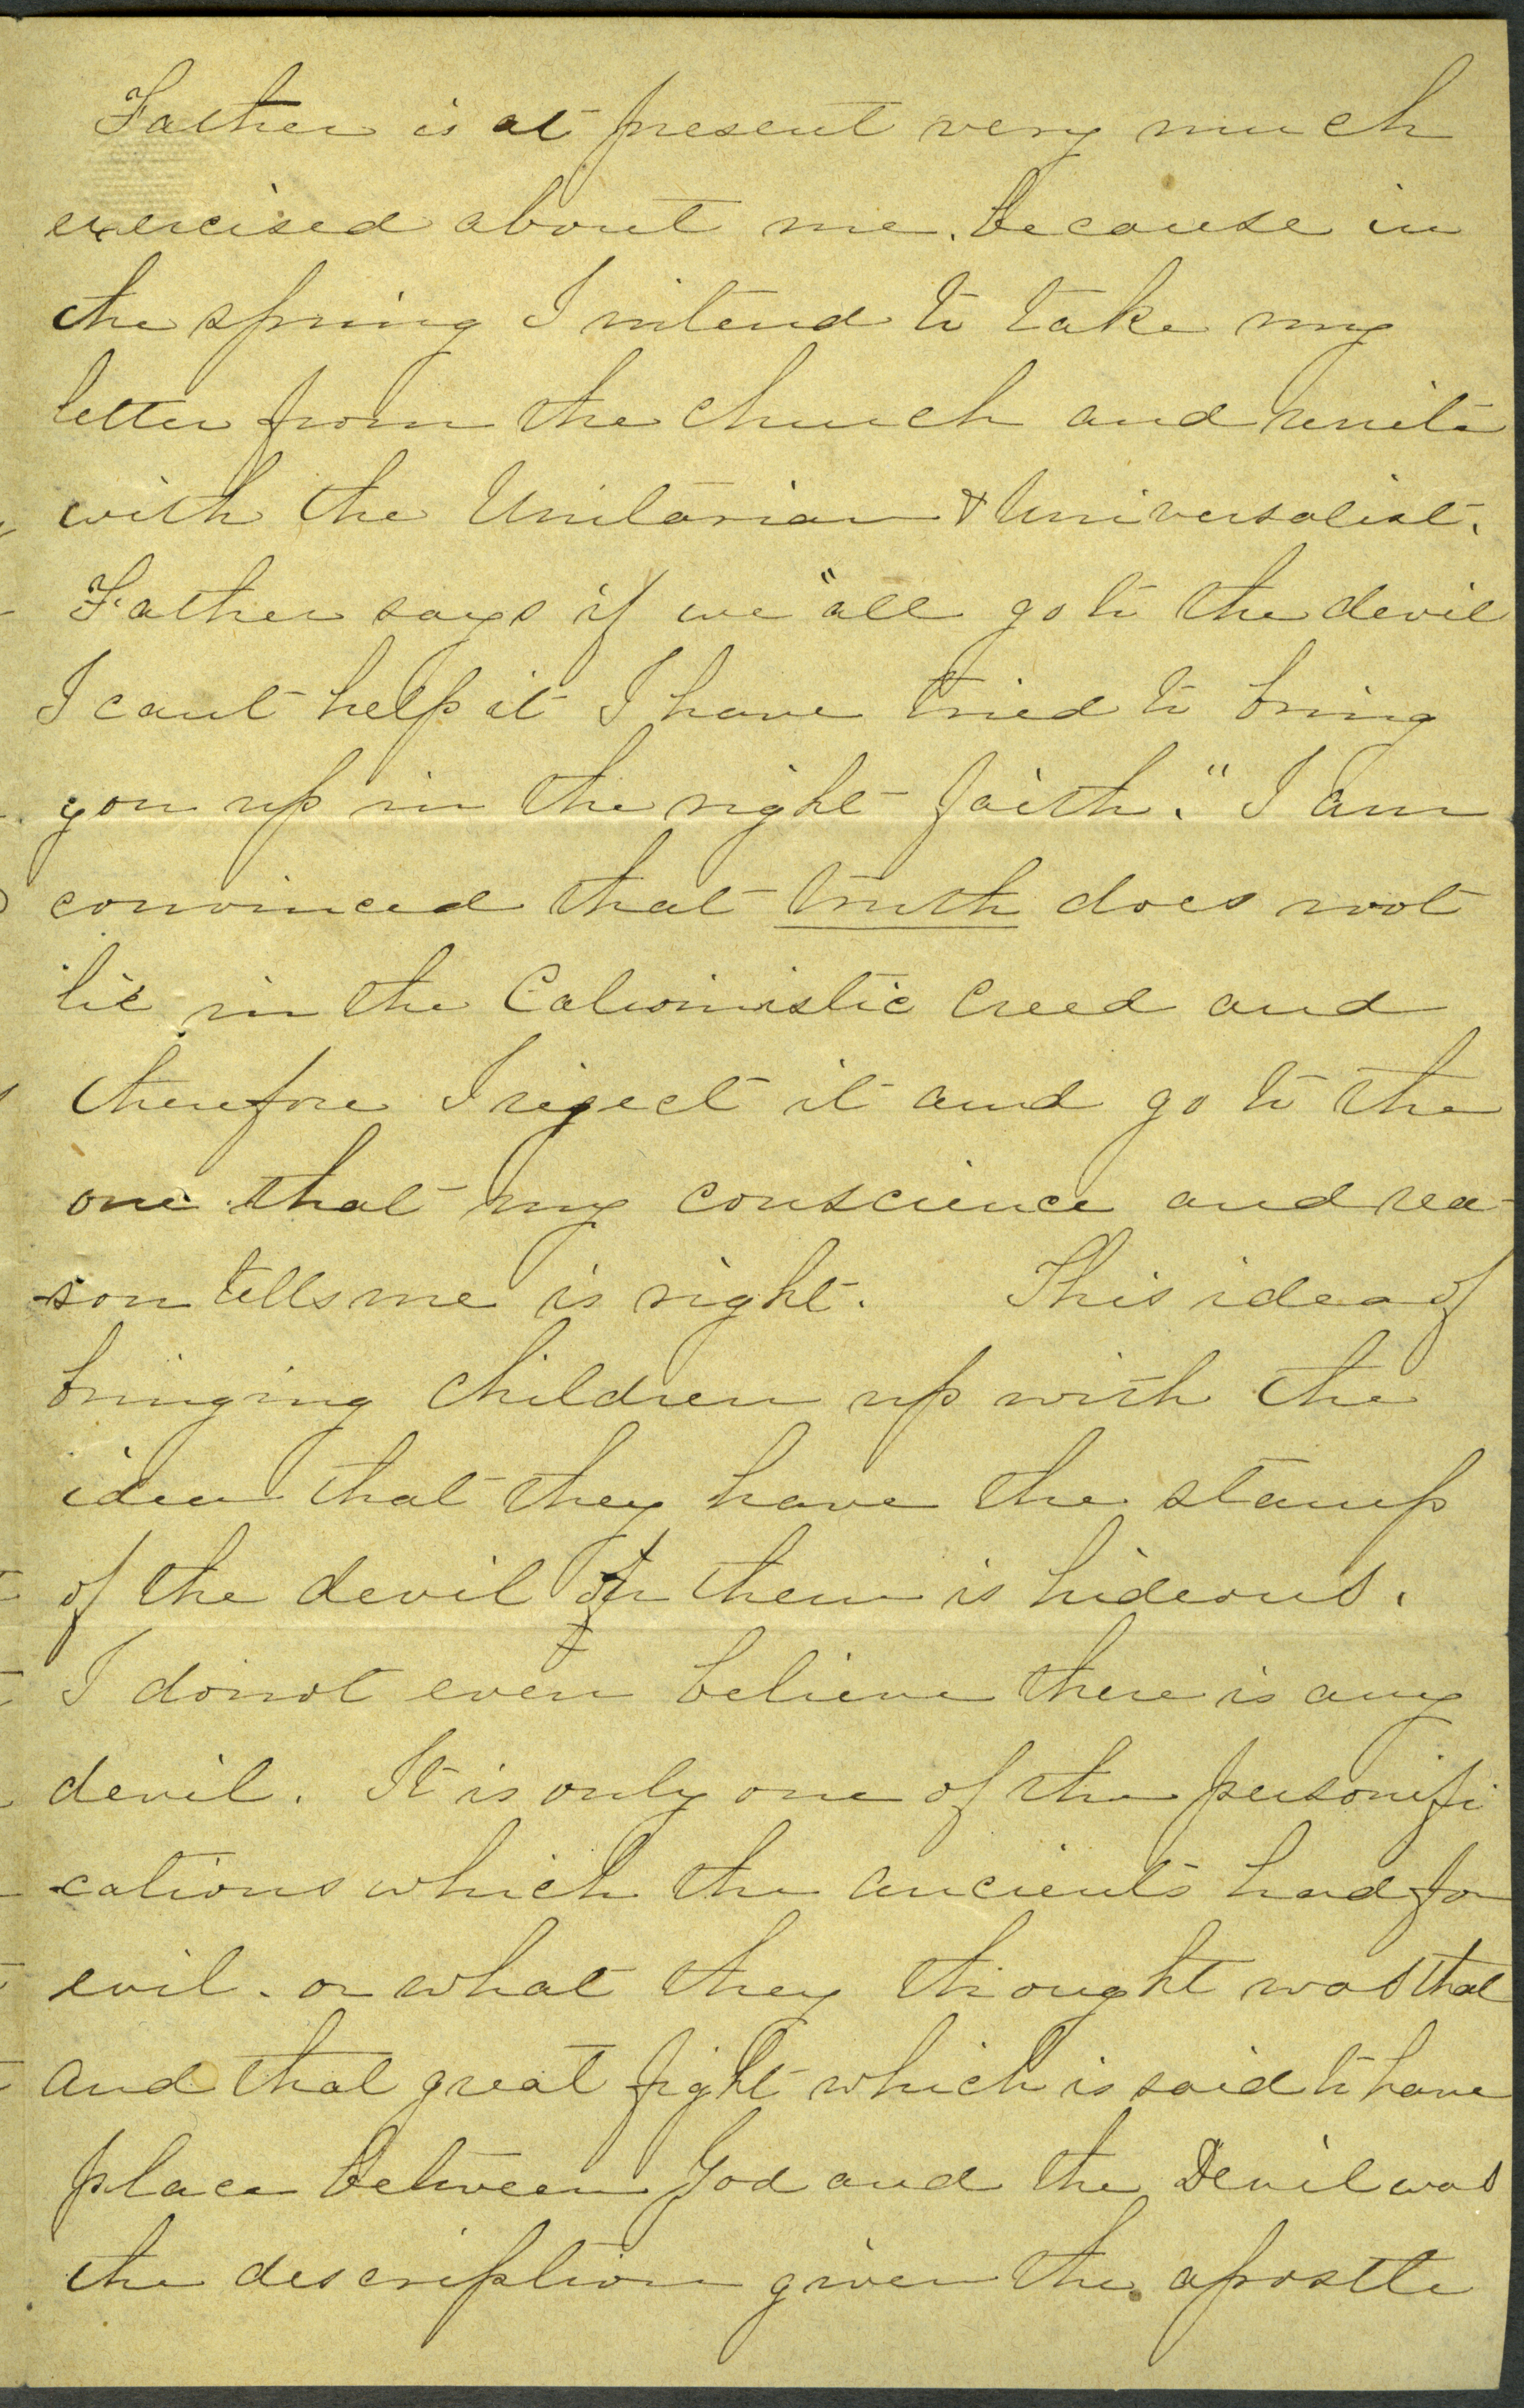 Father is at present very much
exercised about me. because in
the spring I intend to take my
letter from the church and unite
with the Unitarian & Universalist.
Father says if we "all go to the devil
I cant help it I have tried to bring
you up in the right faith." I am
convinced that truth does not
lie in the Calvinistic Creed and
therefore I reject it and go to the
one that my conscience and rea-
son tells me is right. This idea of
bringing children up with the
idea that they have the stamp
of the devil on them is hideous.
I do not even believe there is any
devil. It is only one of the personifi
cations which the ancients had for
evil. or what they thought was that
and that great fight which is said to have
place between God and the Devil was
the description given the apostle